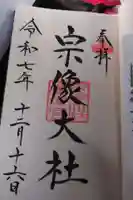 奉拝
宗像大社
令和七年
十二月十六日